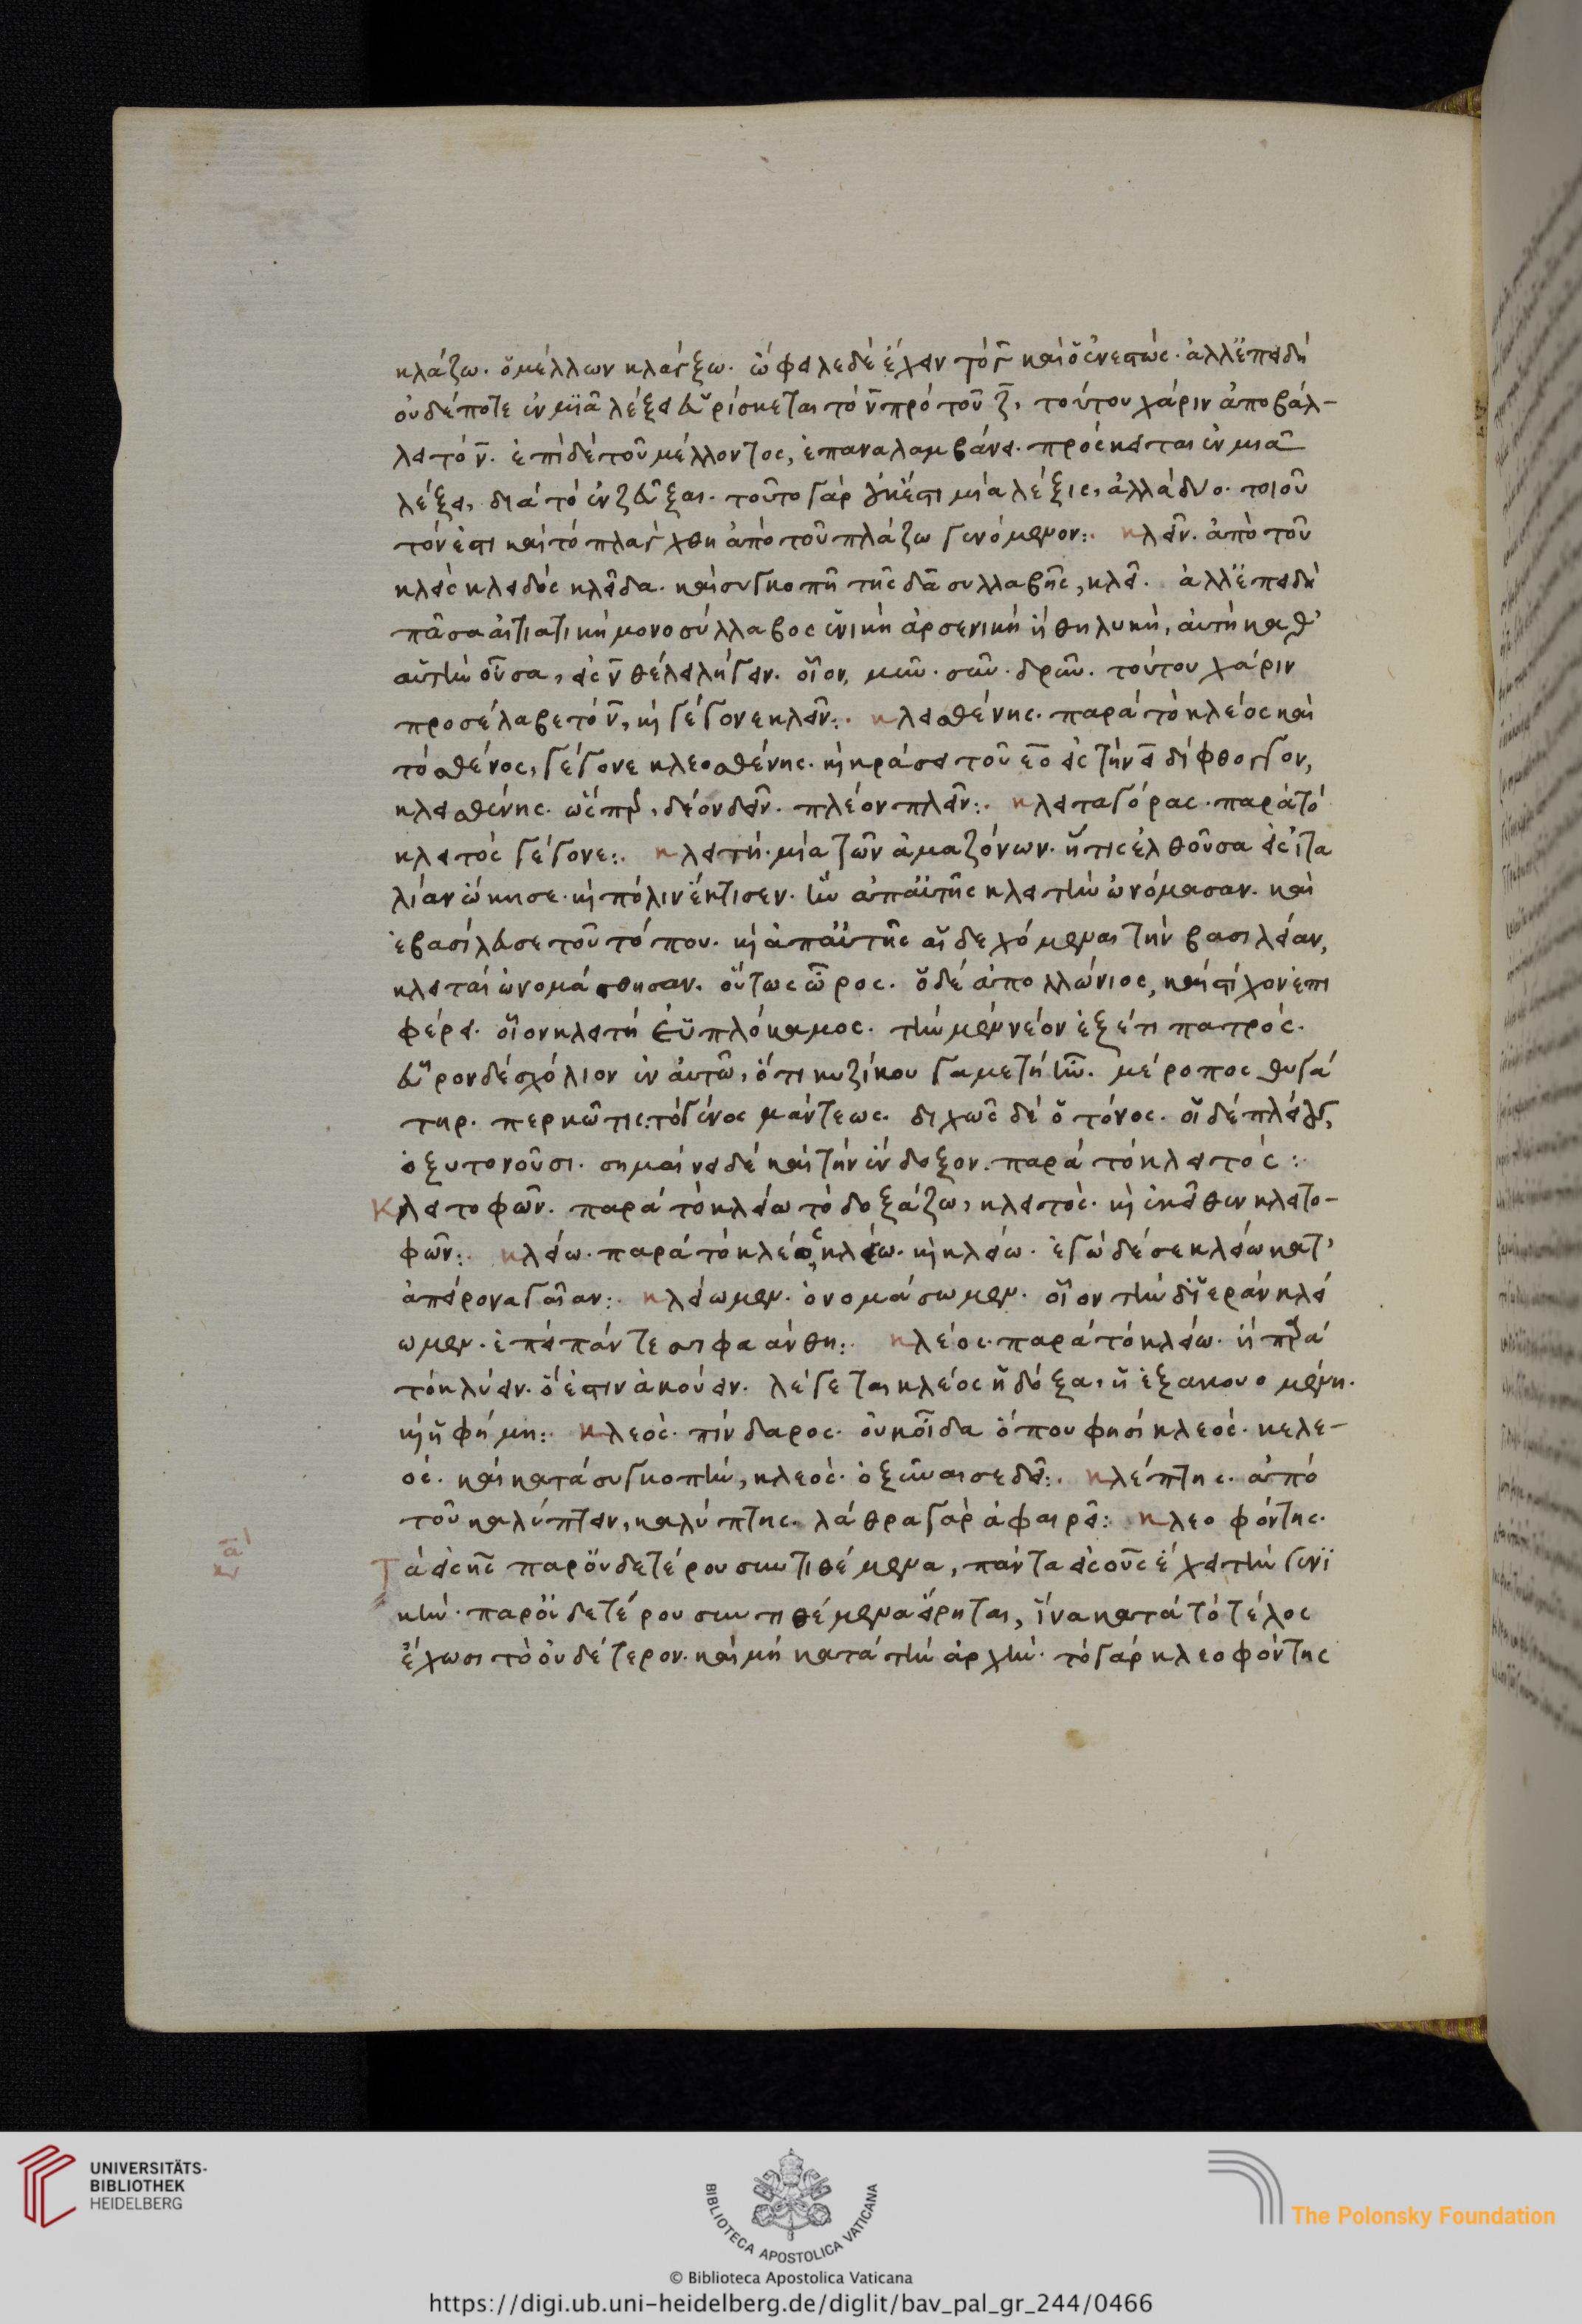 κλάζω. ὁ μέλλων κλάγξω. ὤφειλε δὲ ἔχειν τὸ γ̄ καὶ ὁ ἐνεστώς. ἀλλ' ἐπειδὴ
οὐδέποτε ἐν μιᾷ λέξει εὑρίσκεται τὸ ν̄ πρὸ τοῦ ζ̄, τούτου χάριν ἀποβάλ-
λει τὸ ν̄. ἐπὶ δὲ τοῦ μέλλοντος, ἐπαναλαμβάνει. πρόσκειται ἐν μιᾷ
λέξει, διὰ τὸ ἐνζεῦξαι. τοῦτο γὰρ οὐκ ἔστι μία λέξις, ἀλλὰ δύο. τοιοῦ
τόν ἐστι καὶ τὸ πλάγχθη ἀπὸ τοῦ πλάζω γενόμενον:. κλεῖν. ἀπὸ τοῦ
κλείς κλειδός κλεῖδα. καὶ συγκοπῇ τῆς δα συλλαβῆς, κλεῖ. ἀλλ' ἐπειδὴ
πᾶσα αἰτιατικὴ μονοσύλλαβος ἑνικὴ ἀρσενικὴ ἢ θηλυκή, αὐτὴ καθ'
αὑτὴν οὖσα, εἰς ν̄ θέλει λήγειν. οἷον, μῦν. σῦν. δρῦν. τούτου χάριν
προσέλαβε τὸ ν̄, καὶ γέγονε κλεῖν:. κλεισθένης. παρὰ τὸ κλέος καὶ
τὸ σθένος, γέγονε κλεοσθένης. καὶ κράσει τοῦ ε̄ο̄ εἰς τὴν ει δίφθογγον,
κλεισθένης. ὥσπερ, δέον δεῖν. πλέον πλεῖν:. κλειταγόρας. παρὰ τὸ
κλειτός γέγονε:. κλειτή. μία τῶν ἀμαζόνων. ἥτις ἐλθοῦσα εἰς ἰτα
λίαν ᾤκησε. καὶ πόλιν ἔκτισεν. ἣν ἀπ' αὐτῆς κλειτὴν ὠνόμασαν. καὶ
ἐβασίλευσε τοῦ τόπου. καὶ ἀπ' αὐτῆς αἱ δεχόμεναι τὴν βασιλείαν,
κλειταὶ ὠνομάσθησαν. οὕτως ὦρος. ὁ δὲ ἀπολλώνιος, καὶ στίχον ἐπι
φέρει. οἷον κλειτὴ ἐϋπλόκαμος. τὴν μὲν νέον ἐξέτι πατρός.
εὗρον δὲ σχόλιον ἐν αὐτῷ, ὅτι κυζίκου γαμετὴ ἦν. μέροπος θυγά
τηρ. περκῶτις τὸ γένος μάντεως. διχῶς δὲ ὁ τόνος. οἱ δὲ πλείους,
ὀξυτονοῦσι. σημαίνει δὲ καὶ τὴν ἔνδοξον. παρὰ τὸ κλειτός:
Κλειτοφῶν. παρὰ τὸ κλείω τὸ δοξάζω, κλειτός. καὶ ἐκεῖθεν κλειτο-
φῶν:. κλείω. παρὰ τὸ κλέος, κλέω. καὶ κλείω. ἐγὼ δέ σε κλείω κατ'
ἀπείρονα γαῖαν:. κλείωμεν. ὀνομάσωμεν. οἷον τὴν διερὰν κλεί
ωμεν. ἐπεὶ πάντεσσι φαάνθη:. κλέος. παρὰ τὸ κλείω. ἢ παρὰ
τὸ κλύειν. ὅ ἐστιν ἀκούειν. λέγεται κλέος ἡ δόξα, ἡ ἐξακουομένη.
καὶ ἡ φήμη:. κλεός. πίνδαρος. οὐκ οἶδα ὅπου φησὶ κλεός. κελε-
ός. καὶ κατὰ συγκοπὴν, κλεός. ὀξῦναί σε δεῖ:. κλέπτης. ἀπὸ
τοῦ καλύπτειν, καλύπτης. λάθρα γὰρ ἀφαιρεῖ: κλεοφόντης.
Τὰ εἰς ης παρ' οὐδετέρου συντιθέμενα, πάντα εἰς ους ἔχει τὴν γενι
κήν. παρ' οὐδετέρου συντιθέμενα εἴρηται, ἵνα κατὰ τὸ τέλος
ἔχωσι τὸ οὐδέτερον. καὶ μὴ κατὰ τὴν ἀρχήν. τὸ γὰρ κλεοφόντης
UNIVERSITÄTS-
BIBLIOTHEK
HEIDELBERG
BIBLIOTECA APOSTOLICA VATICANA
The Polonsky Foundation
© Biblioteca Apostolica Vaticana
https://digi.ub.uni-heidelberg.de/diglit/bav_pal_gr_244/0466